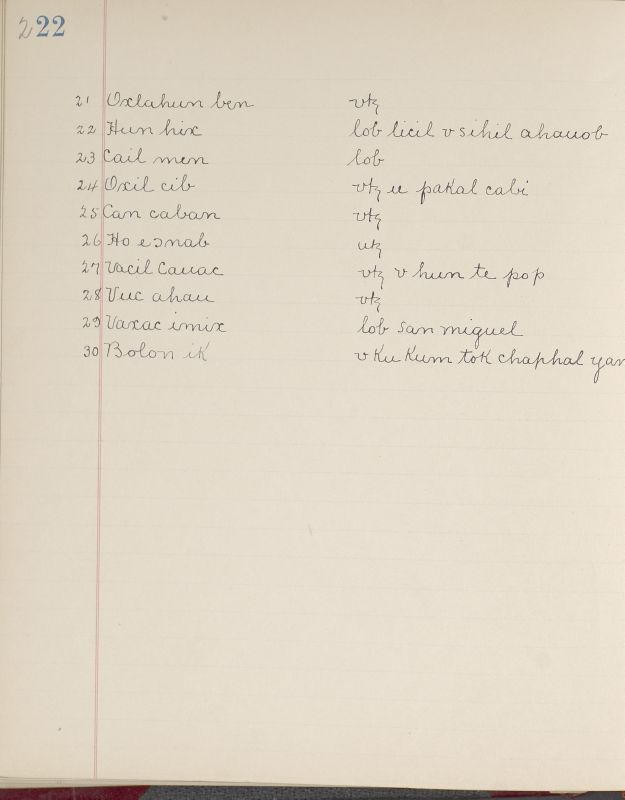 222
21 Oxlahun ben vtz
22 Hun hix lob licil v sihil ahauob
23 Cail men lob
24 Oxil cib vtz u pakal cabi
25 Can caban vtz
26 Ho eɔnab utz
27 Vacil Cauac vtz v hun te pop
28 Vuc ahau vtz
29 Vaxac imix lob san miguel
30 Bolon ik v Ku Kum tok chaphal yan